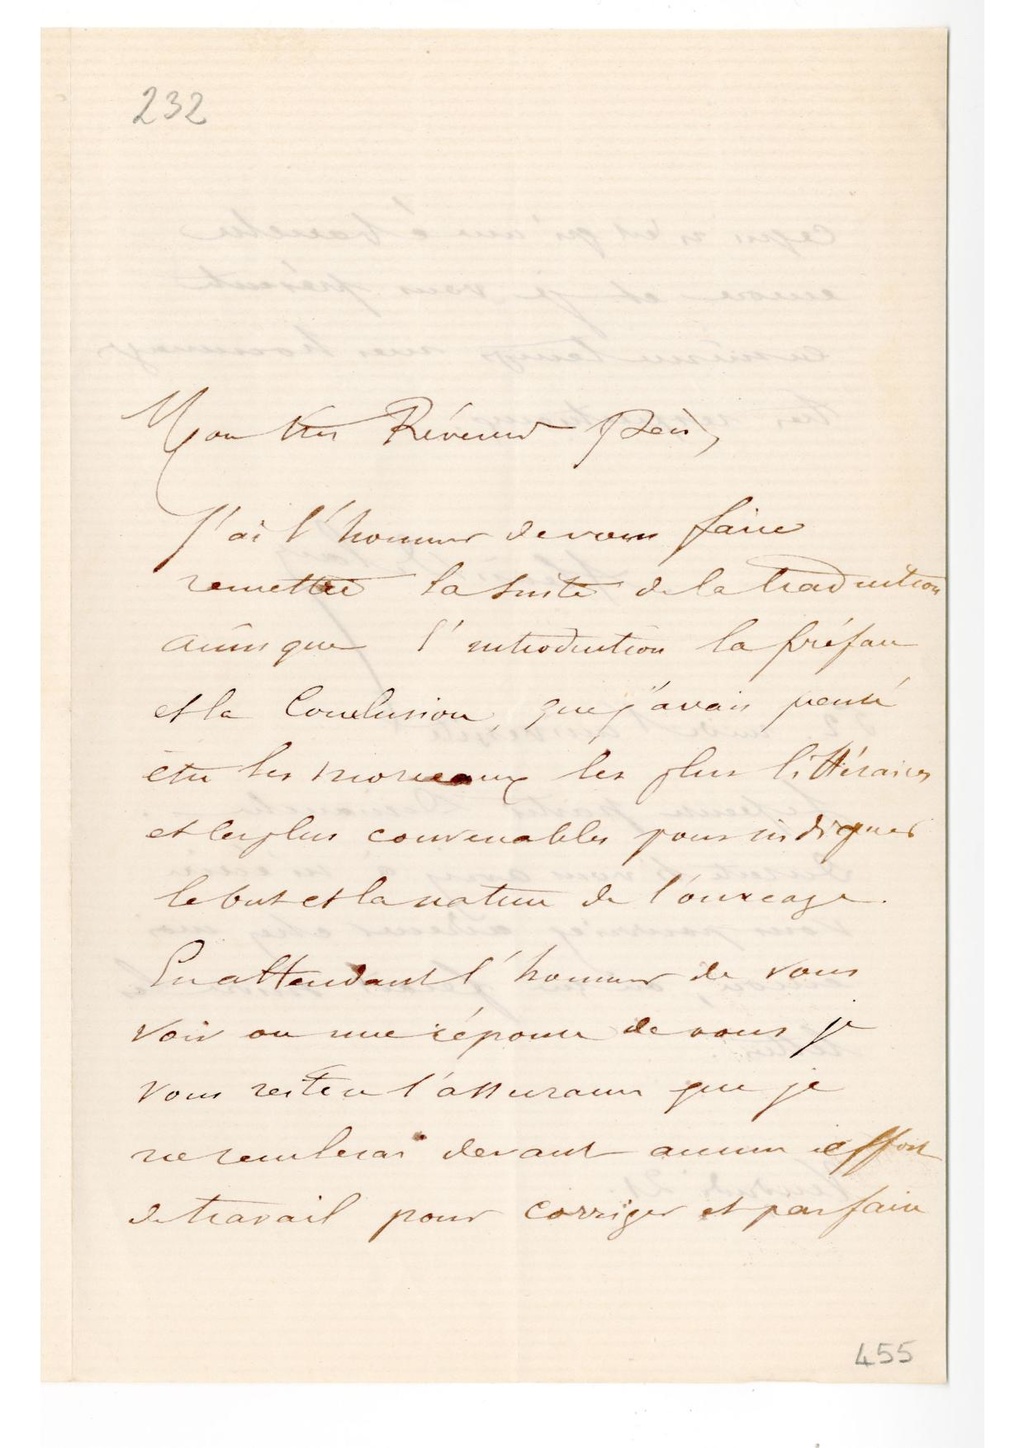 232
Mon très Révérend Père,
J'ai l'honneur de vous faire
remettre la suite de la traduction
ainsi que l'introduction la préface
et la Conclusion, que j'avais pensé
être les morceaux les plus littéraires
et les plus convenables pour indiquer
le but et la nature de l'ouvrage.
En attendant l'honneur de vous
voir ou une réponse de vous je
vous reitere l'assurance que je
ne reculerai devant aucun effort
de travail pour corriger et parfaire
455